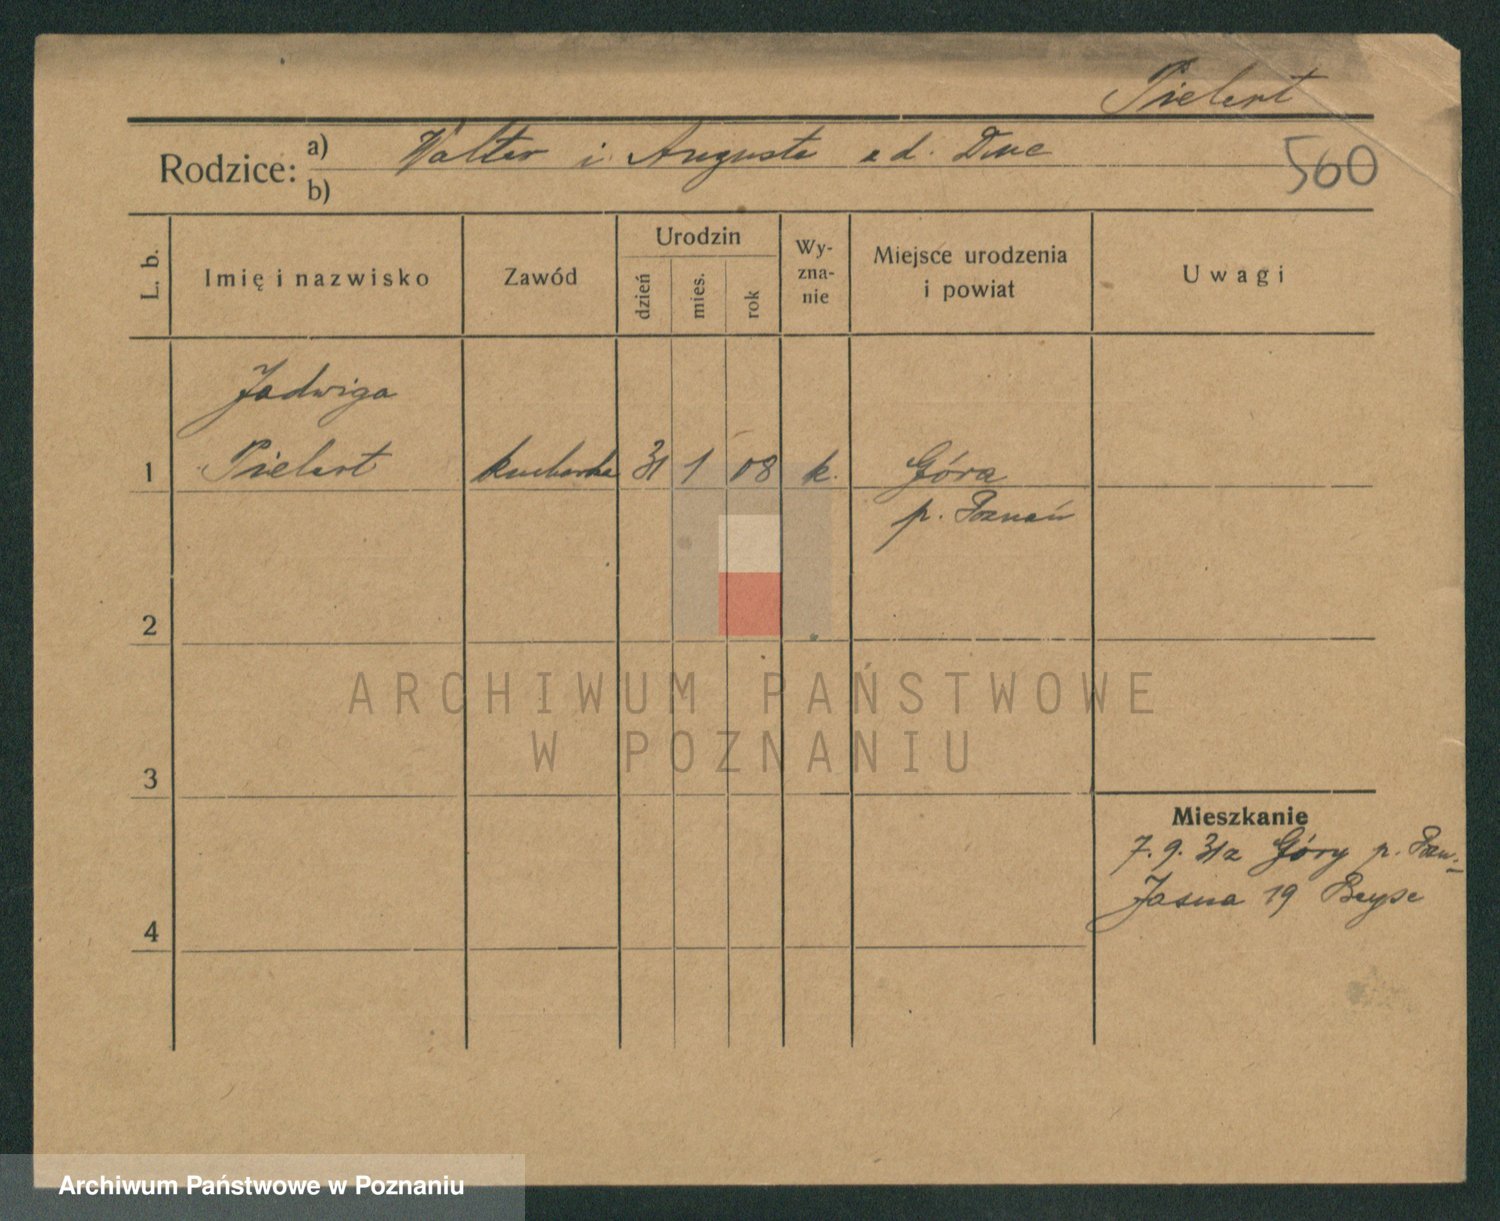 Pielert
Rodzice: a) Walter i Augusta z d.
560
b)
L. b. Imię i nazwisko Zawód Urodzin dzień mies. rok Wy-zna-nie Miejsce urodzenia i powiat Uwagi
Jadwiga
1 Pielert kucharka 31 1 08 k. Góra
p. Poznań
2
ARCHIWUM PAŃSTWOWE
W POZNANIU
3
Mieszkanie
7.9.31 z Góry p. Pozn.
Jasna 19
4
Archiwum Państwowe w Poznaniu